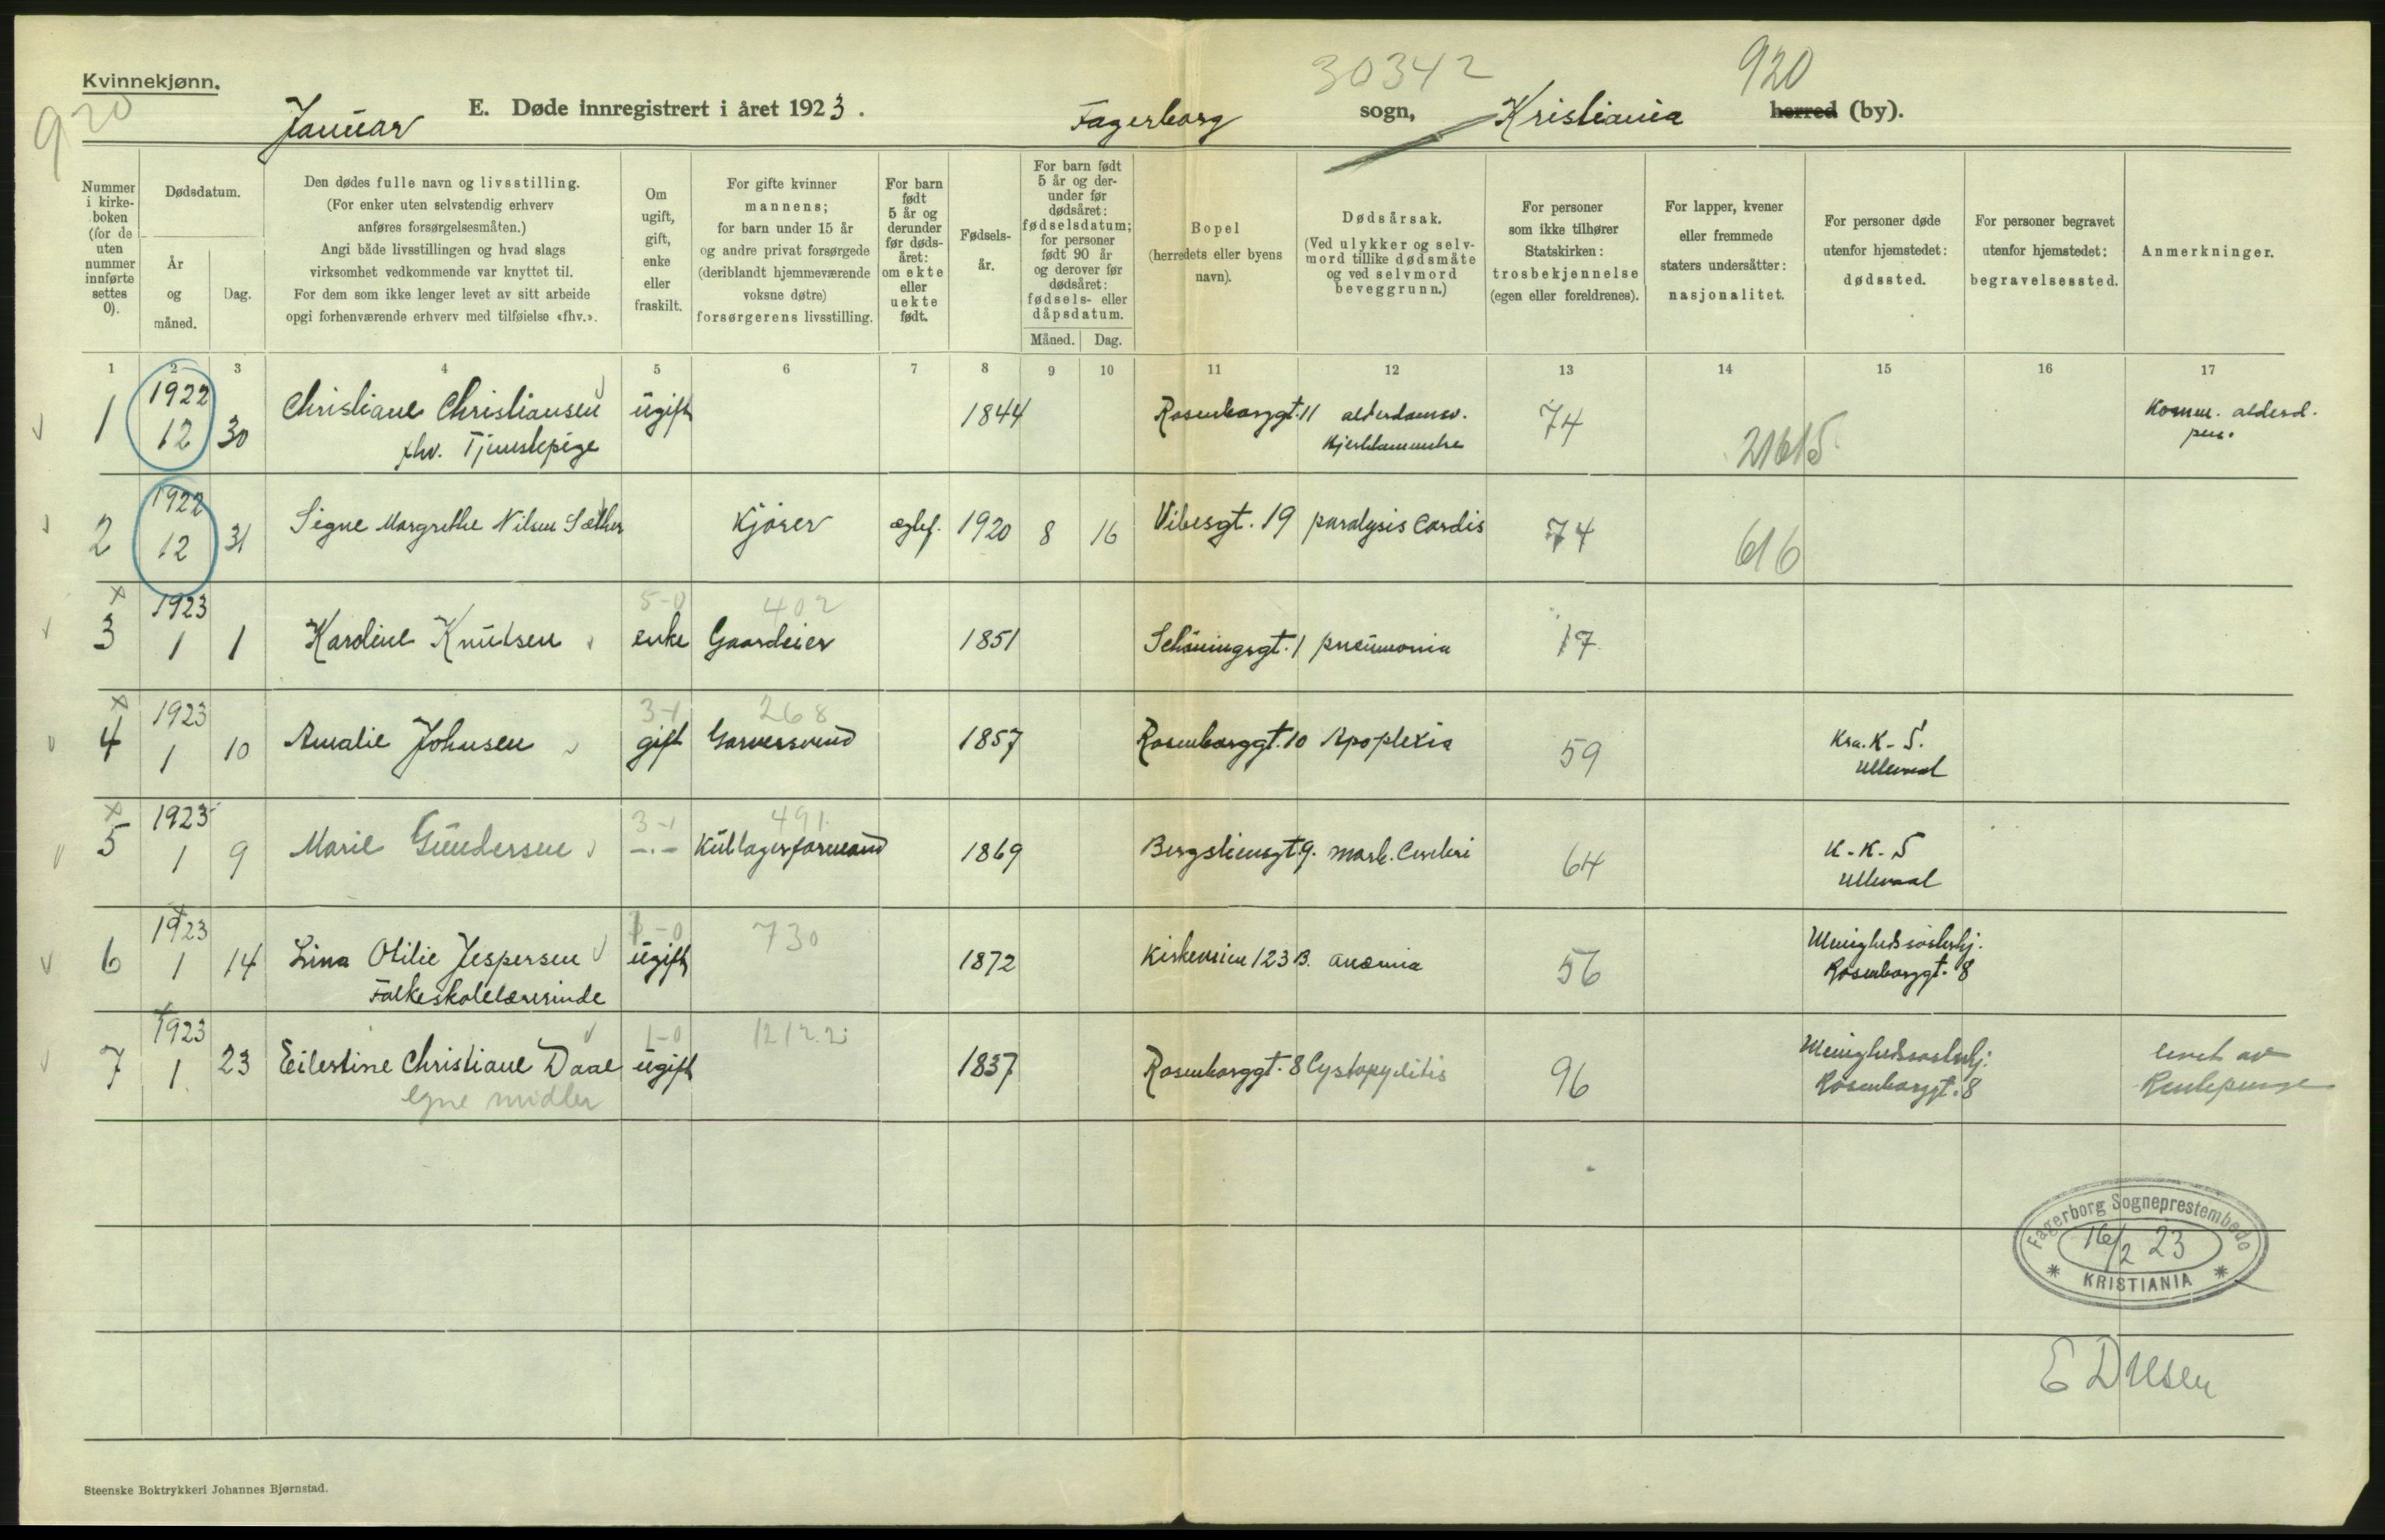 Kvinnekjønn.
920
Januar
E. Døde innregistrert i året 1923.
Fagerborg
sogn,
30342
Kristiania
920
herred (by).
Nummer i kirke-boken (for de uten nummer innførte settes 0).
Dødsdatum.
År og måned.
Dag.
Den dødes fulle navn og livsstilling.
(For enker uten selvstendig erhverv
anføres forsørgelsesmåten.)
Angi både livsstillingen og hvad slags
virksomhet vedkommende var knyttet til.
For dem som ikke lenger levet av sitt arbeide
opgi forhenværende erhverv med tilføielse «fhv.».
Om ugift, gift, enke eller fraskilt.
For gifte kvinner
mannens;
for barn under 15 år
og andre privat forsørgede
(deriblandt hjemmeværende
voksne døtre)
forsørgerens livsstilling.
For barn født 5 år og derunder før døds-året: om ekte eller uekte født.
Fødsels-år.
For barn født 5 år og der-under før dødsåret: fødselsdatum; for personer født 90 år og derover før dødsåret: fødsels- eller dåpsdatum.
Måned. Dag.
Bopel
(herredets eller byens
navn).
Dødsårsak.
(Ved ulykker og selv-
mord tillike dødsmåte
og ved selvmord
beveggrunn.)
For personer
som ikke tilhører
Statskirken:
trosbekjennelse
(egen eller foreldrenes).
For lapper, kvener
eller fremmede
staters undersåtter:
nasjonalitet.
For personer døde
utenfor hjemstedet:
dødssted.
For personer begravet
utenfor hjemstedet:
begravelsessted.
Anmerkninger.
1 2 3 4 5 6 7 8 9 10 11 12 13 14 15 16 17
1 1922 12 30 Christiane Christiansen ugift 1844 Rosenborggt. 11 alderdomsv. 74 21615 Komm. alderd.
fhv. Tjenestepige pen.
2 1922 12 31 Signe Margrethe Nilsen Sæther Kjører ægtef. 1920 8 16 Vibesgt. 19 paralysis Cordis 74 616
5-0 402
3 1923 1 1 Karoline Knutsen enke Gaardeier 1851 Schøningsgt. 1 pneumonia 17
3-1 268
4 1923 1 10 Amalie Johnsen gift Garversvend 1857 Rosenborggt. 10 Apoplexia 59 Kra. K. S.
Ullevaal
3-1 491
5 1923 1 9 Marie Gundersen -.- Kullagerformand 1869 Bergsliensgt. 9. 64 K. K. S
Ullevaal
730
6 1923 1 14 Lina Otilie Jespersen ugift 1872 Kirkeveien 123 B. anæmia 56 Menighedssøsterhj.
Folkeskolelærerinde Rosenborggt. 8
1-0
7 1923 1 23 Eilertine Christiane Daae ugift 1837 Rosenborggt. 8 Cystopyelitis 96 Menighedssøsterhj. levet av
egne midler Rosenborggt. 8 Rentepenge
Fagerborg Sogneprestembede
16/2 23
* KRISTIANIA *
Steenske Boktrykkeri Johannes Bjørnstad.